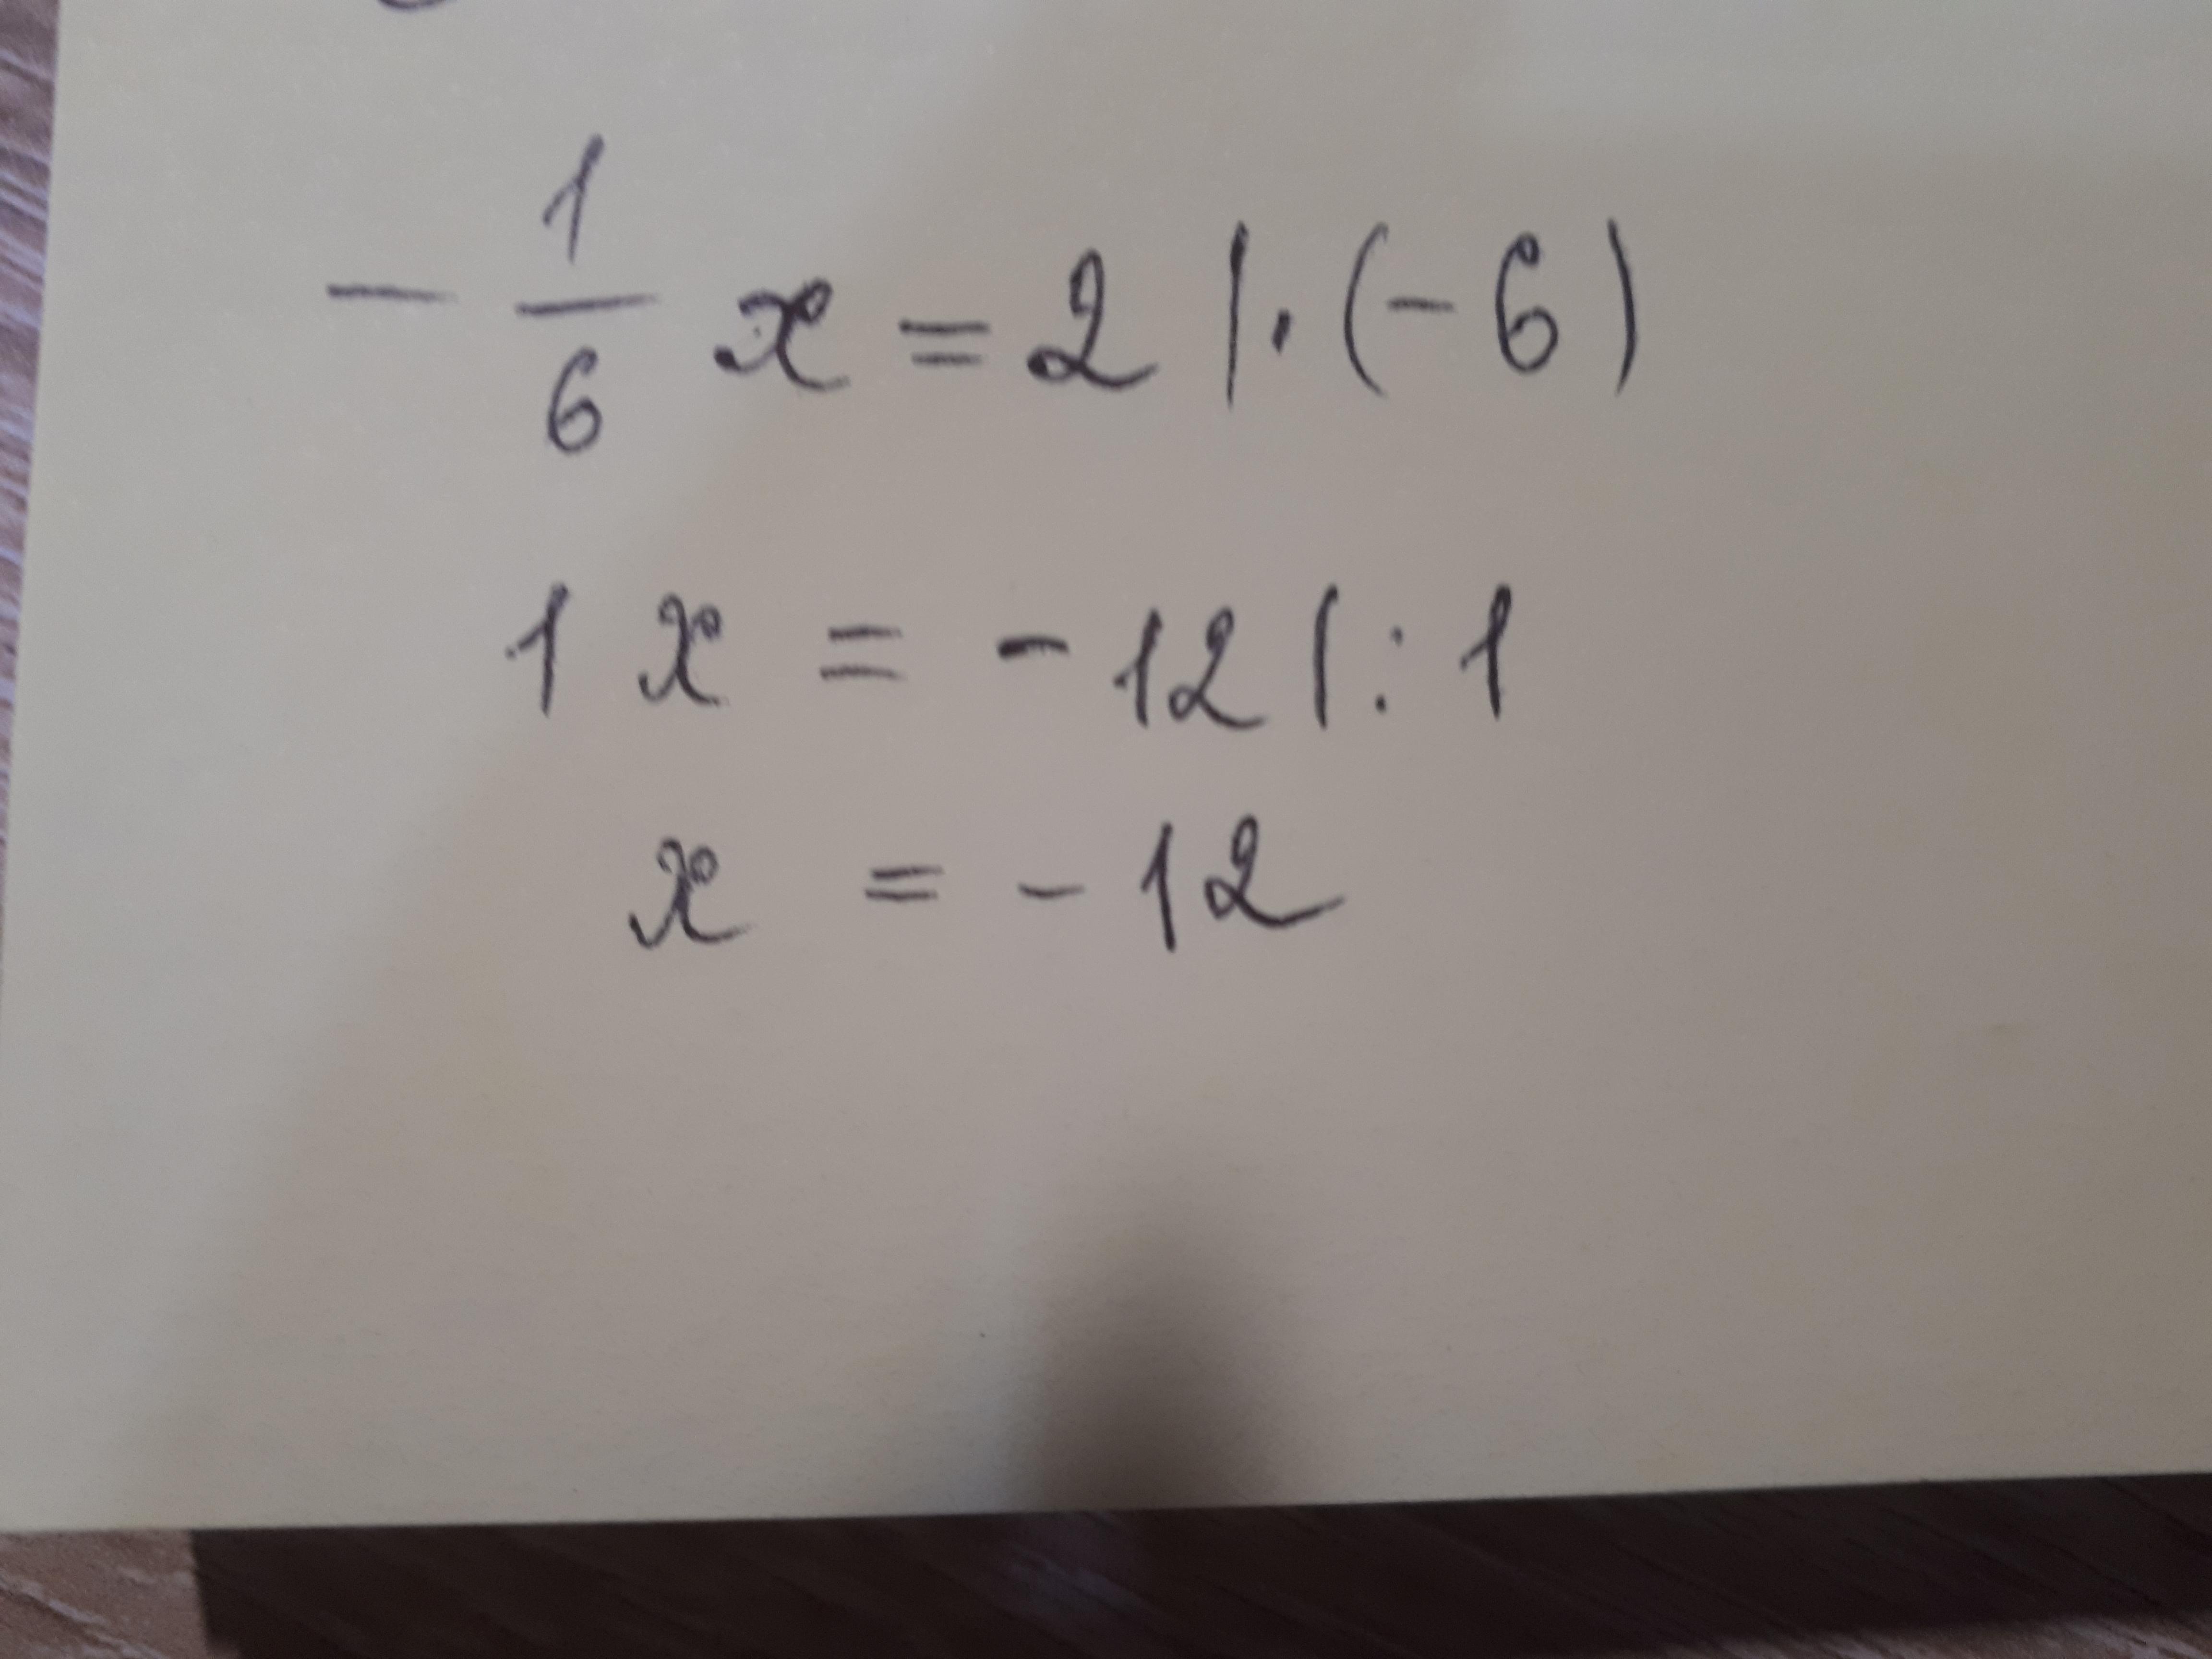 - 1/6 x = 2 | · (-6)
1 x = -12 | : 1
x = -12